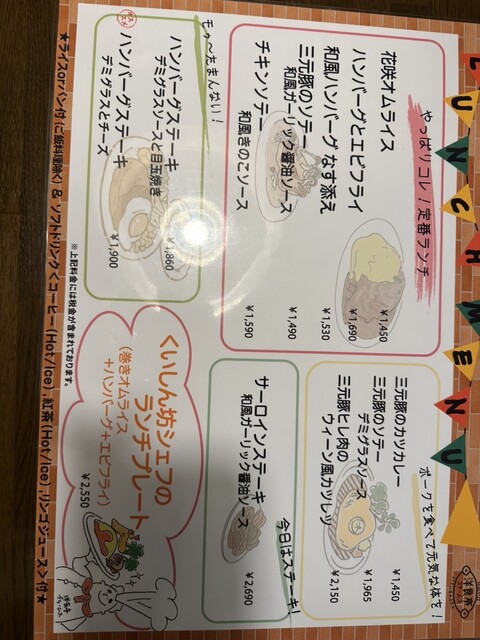 LUNCH MENU
洋食屋
やっぱりコレ!定番ランチ
花咲オムライス ¥1,450
ハンバーグとエビフライ ¥1,690
和風ハンバーグ なす添え ¥1,530
三元豚のソテー
和風ガーリック醤油ソース ¥1,490
チキンソテー
和風きのこソース ¥1,590
も〜たまんない!
ハンバーグステーキ
デミグラスソースと目玉焼き ¥1,860
オススメ
ハンバーグステーキ
デミグラスとチーズ ¥1,900
ポークを食べて元気な体を!
三元豚のカツカレー ¥1,450
三元豚のソテー
デミグラスソース ¥1,965
三元豚ヒレ肉の
ウィーン風カツレツ ¥2,150
今日はステーキ!
サーロインステーキ
和風ガーリック醤油ソース ¥2,690
くいしん坊シェフの
ランチプレート
(巻きオムライス
+ハンバーグ+エビフライ)
¥2,550
※上記料金には税金が含まれております。
★ライスorパン付(ご飯料理除く)& ソフトドリンク<コーヒー(Hot/Ice),紅茶(Hot/Ice),リンゴジュース>付★